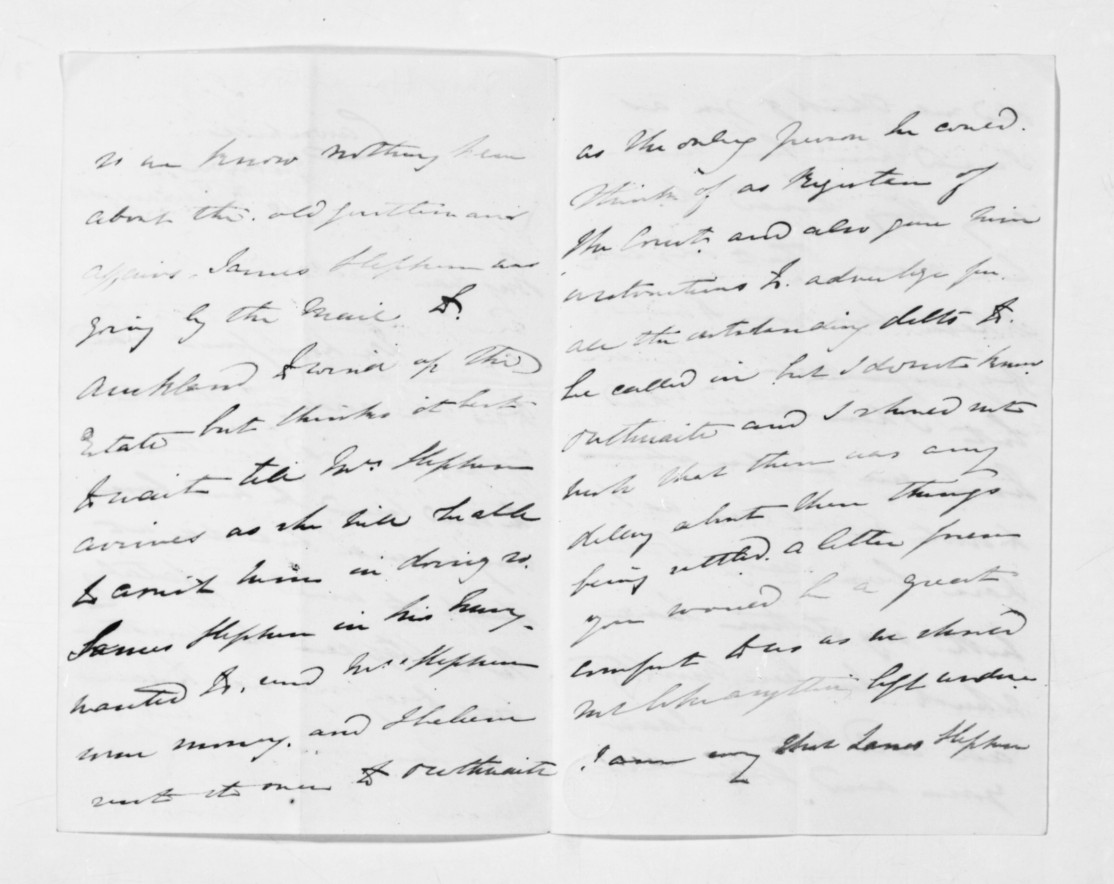 so we know nothing here
about the old gentlemans
affairs. James Stephen was
going by the Mail to
Auckland to wind up the
Estate but thinks it best
to wait till Mrs Stephen
arrives as she will be able
to assist him in doing so.
James Stephen in his hurry
wanted to send Mrs Stephen
more money. and I believe
sent it over to Outhwaite
as the only person he could
think of as Registrar of
the Court. and also gave him
instructions to advertise for
all the outstanding debts to
be called in but I dont know
Outhwaite and I should not
wish that there was any
delay about these things
being settled. a letter from
you would be a great
comfort to us as we should
not like anything left undone
I am sorry that James Stephen